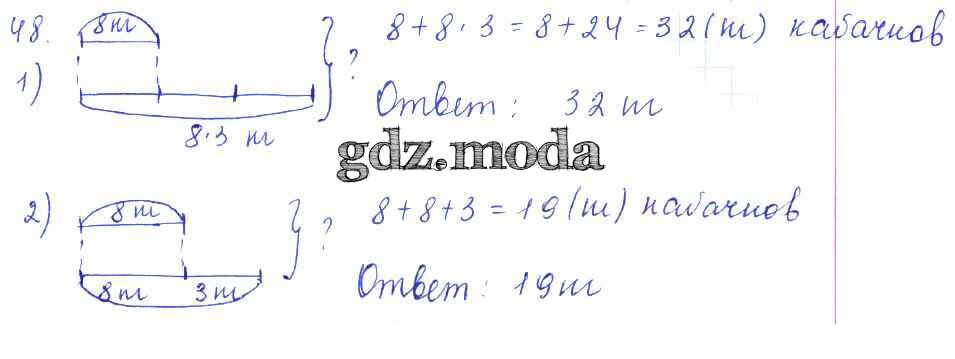 48.
1)
8 т
8·3 т
?
8+8·3=8+24=32(т) кабачков
Ответ: 32 т
gdz.moda
2)
8 т
8 т 3 т
?
8+8+3=19(т) кабачков
Ответ: 19 т